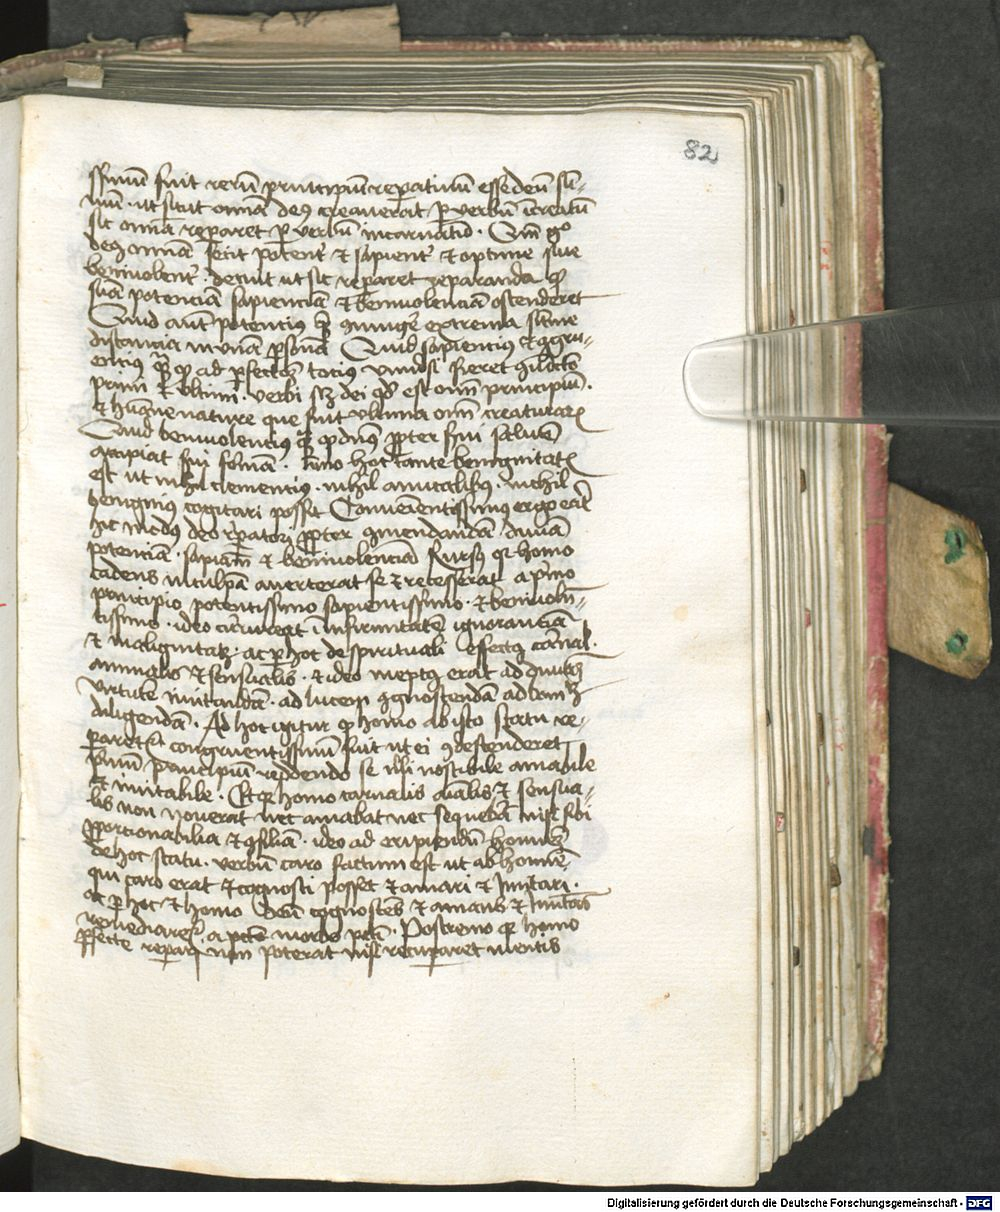 82
ssimum fuit rerum principium reparatiuum esse deum sum-
mum · ut sicut omnia deus creauerat per verbum increatum
sic omnia reparet per verbum incarnatum · Quoniam ergo
deus omnia fecit potenter et sapienter et optime siue
beniuolenter · decuit ut sic repararet reparanda quod
suam potenciam sapienciam et beniuolenciam ostenderet
Quid autem potentius quam coniungere extrema summe
distancia in vnam personam Quid sapiencius et congru-
encius quam quod ad perfectionem tocius vniuersi fieret coniunctio
primi et vltimi · verbi scilicet dei quod est omnium principium ·
et humane nature que fuit vltima omnium creaturarum
Quid beniuolencius quam quod dominus propter serui salutem
accipiat serui formam · Immo hoc tante benignitatis
est ut nihil clementius · nihil amicabilius · nichil
benignius cogitari posset Convenientissimus ergo erat
hic modus deo reparatori propter commendandam diuinam
potenciam · sapienciam et beniuolenciam Rursus quia homo
cadens in culpam auerterat se et recesserat a primo
principio potentissimo sapientissimo · et beniuolen-
tissimo · ideo corruerat in infirmitatem ignoranciam
et malignitatem · ac per hoc de spirituali effectus carnalis ·
animalis et sensualis · et ideo ineptus erat ad diuinam
virtutem imitandam · ad lucem cognoscendam ad bonum
diligendam · Ad hoc igitur quod homo ab isto statu re-
pararetur congruentissimum fuit ut ei condescenderet
primum principium reddendo se illi noscibile amabile
et imitabile · Et quia homo carnalis animalis et sensua-
lis non nouerat nec amabat nec sequebatur nisi sibi
proporcionabilia et consimilia · ideo ad eripiendum hominem
de hoc statu · verbum caro factum est ut ab homine
qui caro erat et cognosci posset et amari et Imitari ·
ac per hoc et homo deum cognoscens et amans et Imitans
remediaretur a peccati morbo Postremo quia homo
perfecte reparari non poterat nisi recuparet mentis
Digitalisierung gefördert durch die Deutsche Forschungsgemeinschaft - DFG